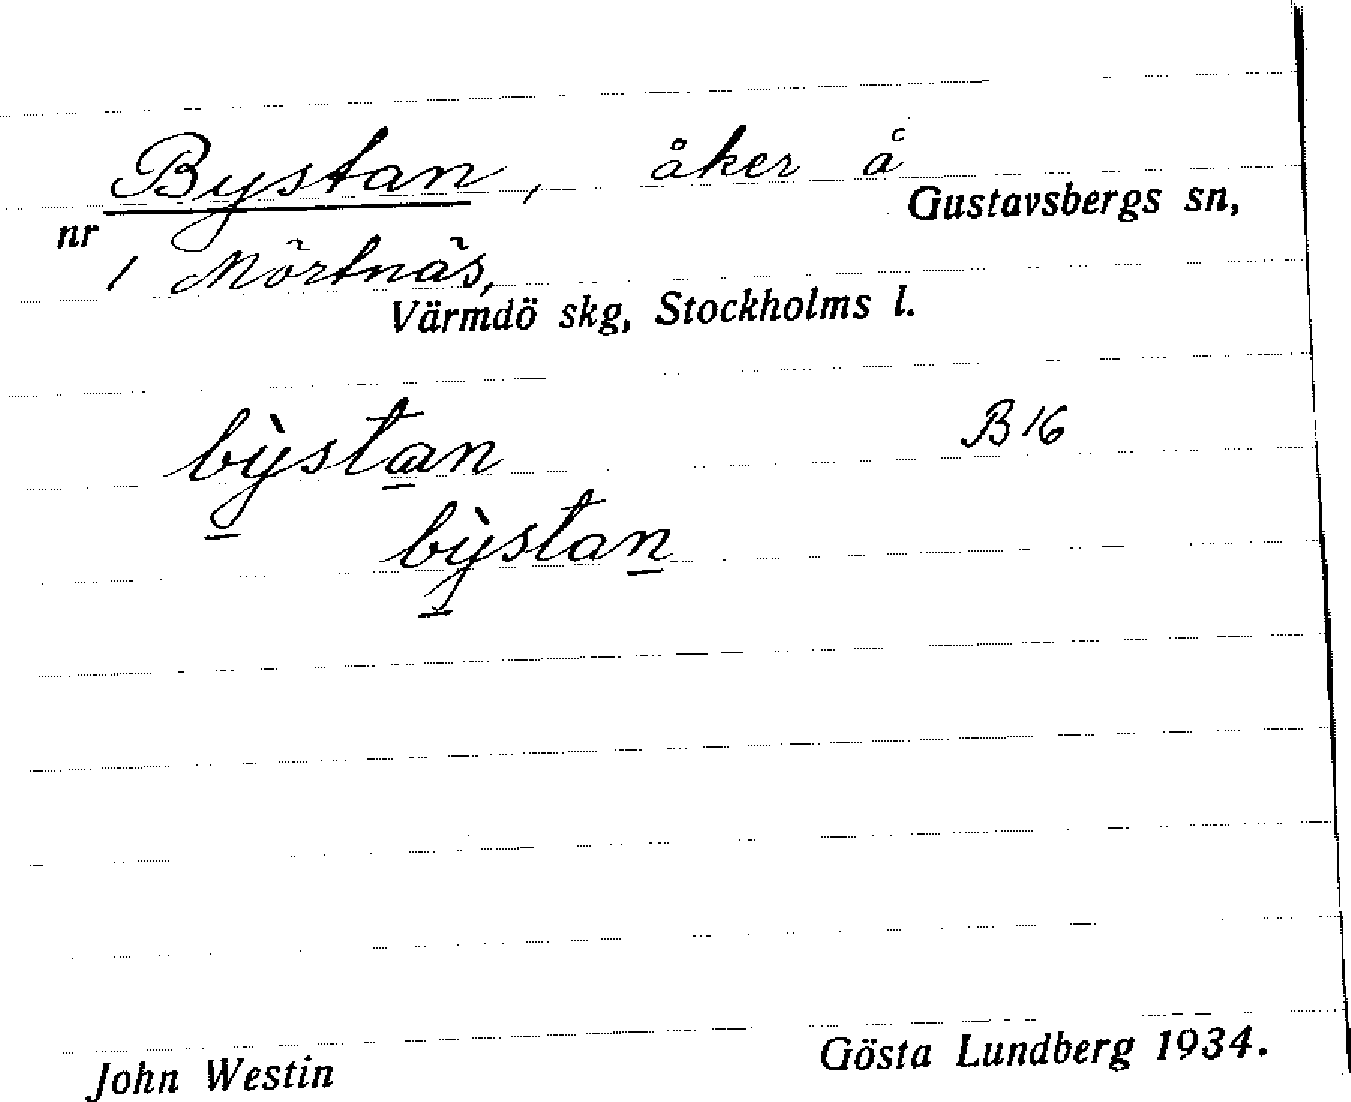 Bystan, åker å
Gustavsbergs sn,
nr
1 Mörtnäs,
Värmdö skg, Stockholms l.
bỳstan B 16
bỳstan
John Westin Gösta Lundberg 1934.